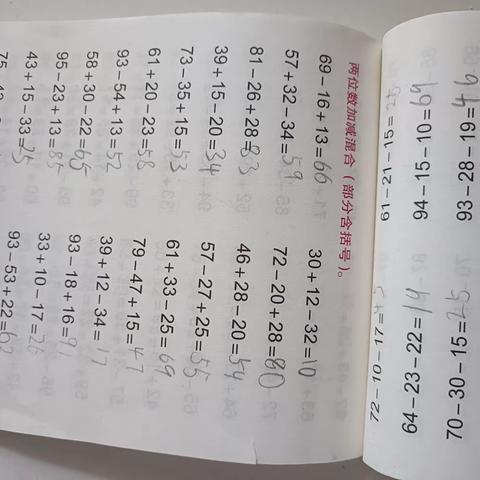 两位数加减混合（部分含括号）。
69−16+13=66 30+12−32=10
57+32−34=59 72−20+28=80
81−26+28=83 46+28−20=54
39+15−20=34 57−27+25=55
73−35+15=53 61+33−25=69
61+20−23=58 79−47+15=47
93−54+13=52 39+12−34=17
58+30−22=65 93−18+16=91
95−23+13=85 33+10−17=26
43+15−33=25 93−53+22=62
72−10−17=45 61−21−15=25
64−23−22=19 94−15−10=69
70−30−15=25 93−28−19=46